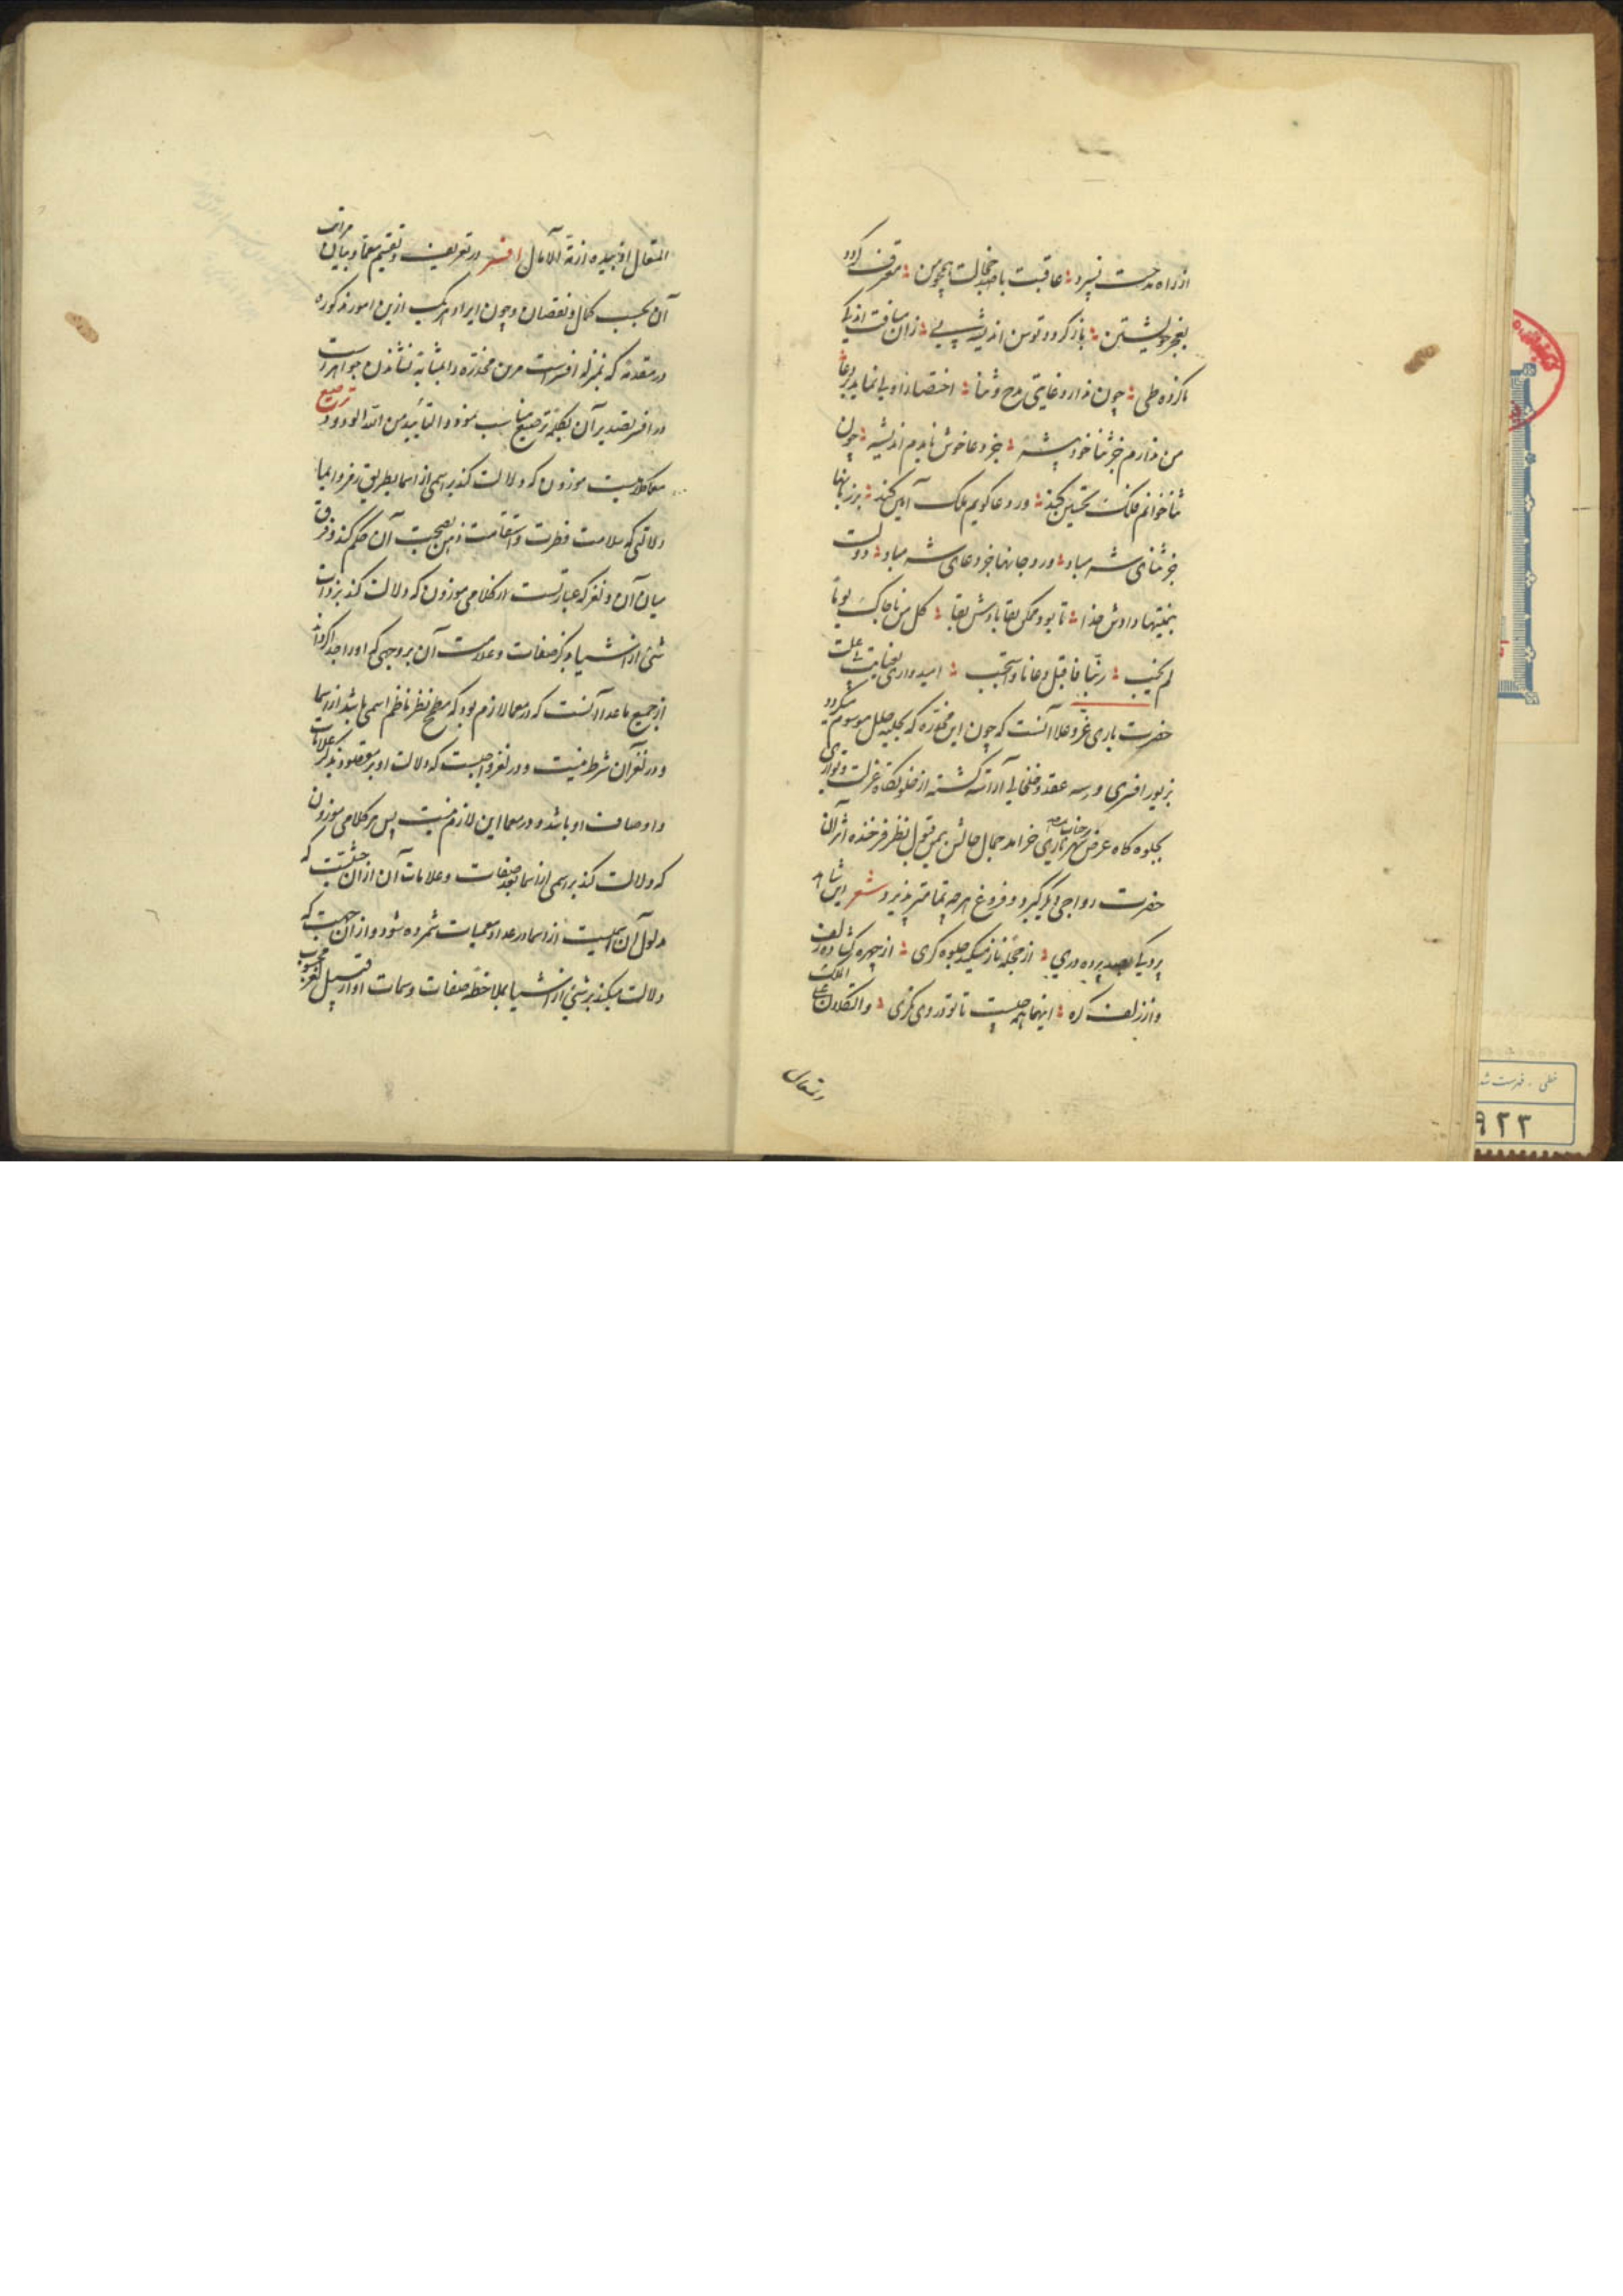 از راه مدحت نسپرد ؛ عاقبت با صد خجالت همچو من ؛ معترف گردد
بعجز خویشتن ؛ باز گردد توسن اندیشه پی ؛ زان مسافت اندکی
ناکرده طی ؛ چون ندارد غایتی مدح و ثنا ؛ اختصار اولی نماید بر دعا
من ندارم جز ثنا خود پیشه ؛ جز دعا خوش نایدم اندیشه ؛ چون
ثنا خوانم فلک تحسین کند ؛ ور دعا گویم ملک آمین کند ؛ بر زبانها
جز ثنای شه مباد ؛ ورد جانها جز دعای شه مباد ؛ دولت
بمنتها دادش خدا ؛ تا بود ممکن بقا بادش بقا ؛ کل من ناجاک یوما
لم یخب ؛ ربنا فاقبل دعانا واستجب ؛ امیدواری بعنایت بی علت
حضرت باری عز و علا آنست که چون این مخدره که بحلیه حلل موسوم میگردد
بزیور افسری و سه عقد و خلخالی آراسته گشته از خلوتگاه عزلت و تواری
بجلوه گاه عرض جناب شهریاری خرامد جمال حالش بیمن قبول نظر فرخنده اثر آن
حضرت رواجی دیگر گیرد و فروغ هر چه تمامتر پذیرد شعر این شاهد
پردگی بصد پرده دری ؛ از حجله ناز میکند جلوه گری ؛ از چهره گشاده زلف
وز زلف گره ؛ اینها همه چیست تا تو در وی نگری ؛ والتکلان علی الملک
المتعال
المتعال و بیده ازمة الآمال افسر در تعریف و تقسیم معما و بیان مراتب
آن بحسب کمال و نقصان و چون ایراد هر یک ازین امور مذکوره
در مقدمه که بمنزله افسر است مر این مخدره را بمثابه نشاندن جواهر است
در افسر تصدیر آن بکلمه ترصیع مناسب نمود و التأیید من الله الودود ترصیع
معما کلامیست موزون که دلالت کند بر اسمی از اسما بطریق رمز و ایما
دلالتی که سلامت فطرت و استقامت ذهن بصحت آن حکم کند و فرق
میان آن و لغز که عبارتست از کلامی موزون که دلالت کند بر ذات
شئ از اشیا بذکر صفات و علامت آن بر وجهی که او را جدا گرداند
از جمیع ما عدا آنست که در معما لازم بود که مطمح نظر ناظم اسمی باشد از اسما
و در لغز آن شرط نیست و در لغز واجبست که دلالت او بر مقصود بذکر علامات
و اوصاف او باشد و در معما این لازم نیست پس هر کلامی موزون
که دلالت کند بر اسمی از اسما بعد صفات و علامات آن از آن حیثیت که
مدلول آن اسمیست از اسما در عداد معمیات شمرده شود و از آن جهت که
دلالت میکند بر شئ از اشیا بملاحظه صفات و سمات او از قبیل لغز محسوب
خطی - فهرست شد
۹۲۳